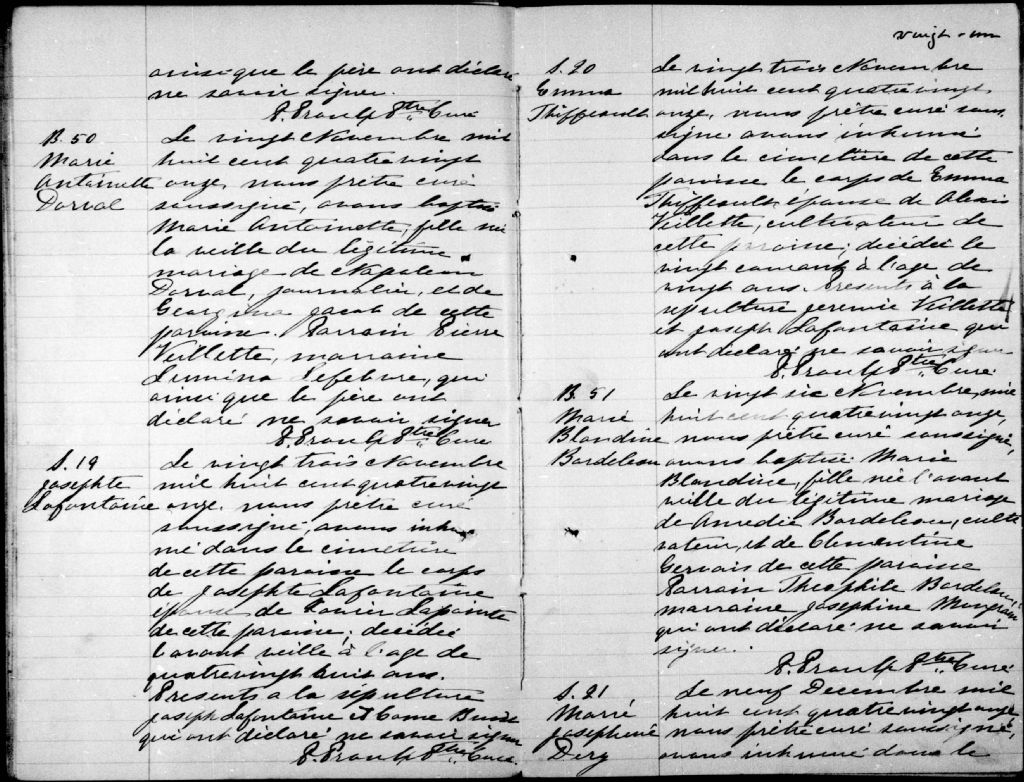 vingt-un
ainsi que le père ont déclaré
ne savoir signer.
Ptre Curé
B. 50
Marie
Antoinette
Dorval
Le vingt Novembre mil
huit cent quatre vingt
onze, nous prêtre curé
soussigné, avons baptisé
Marie Antoinette, fille née
la veille du légitime
mariage de Napoléon
Dorval, journalier, et de
Georgina Jacob de cette
paroisse. Parrain Pierre
Veillette, marraine
Lumina Lefebvre, qui
ainsi que le père ont
déclaré ne savoir signer
Ptre Curé
S. 19
Josephte
Lafontaine
Le vingt trois Novembre
mil huit cent quatre vingt
onze, nous prêtre curé
soussigné avons inhu-
mé dans le cimetière
de cette paroisse le corps
de Josephte Lafontaine
épouse de Lapointe
de cette paroisse; décédée
l'avant veille à l'age de
quatrevingt huit ans.
Presents a la sépulture
Joseph Lafontaine et Come
qui ont déclaré ne savoir signer
Ptre Curé
S. 20
Emma
Thiffeault
Le vingt trois Novembre
mil huit cent quatre vingt
onze, nous prêtre curé sous-
signé avons inhumé
dans le cimetière de cette
paroisse le corps de Emma
Thiffeault, épouse de Alexis
Veillette, cultivateur de
cette paroisse; décédée le
vingt courant à l'age de
vingt ans. Presents à la
sépulture Jeremie Veillette
et Joseph Lafontaine qui
ont déclaré ne savoir signer
Ptre Curé
B. 51
Marie
Blandine
Bordeleau
Le vingt six Novembre, mil
huit cent quatre vingt onze,
nous prêtre curé soussigné,
avons baptisé Marie
Blandine, fille née l'avant
veille du légitime mariage
de Amedée Bordeleau, culti-
vateur, et de Clementine
Gervais de cette paroisse
Parrain Theophile Bordeleau,
marraine Josephine Mongrain
qui ont déclaré ne savoir
signer.
Ptre Curé
S. 21
Marie
Josephine
Dery
Le neuf Decembre mil
huit cent quatre vingt onze
nous prêtre curé soussigné,
avons inhumé dans le